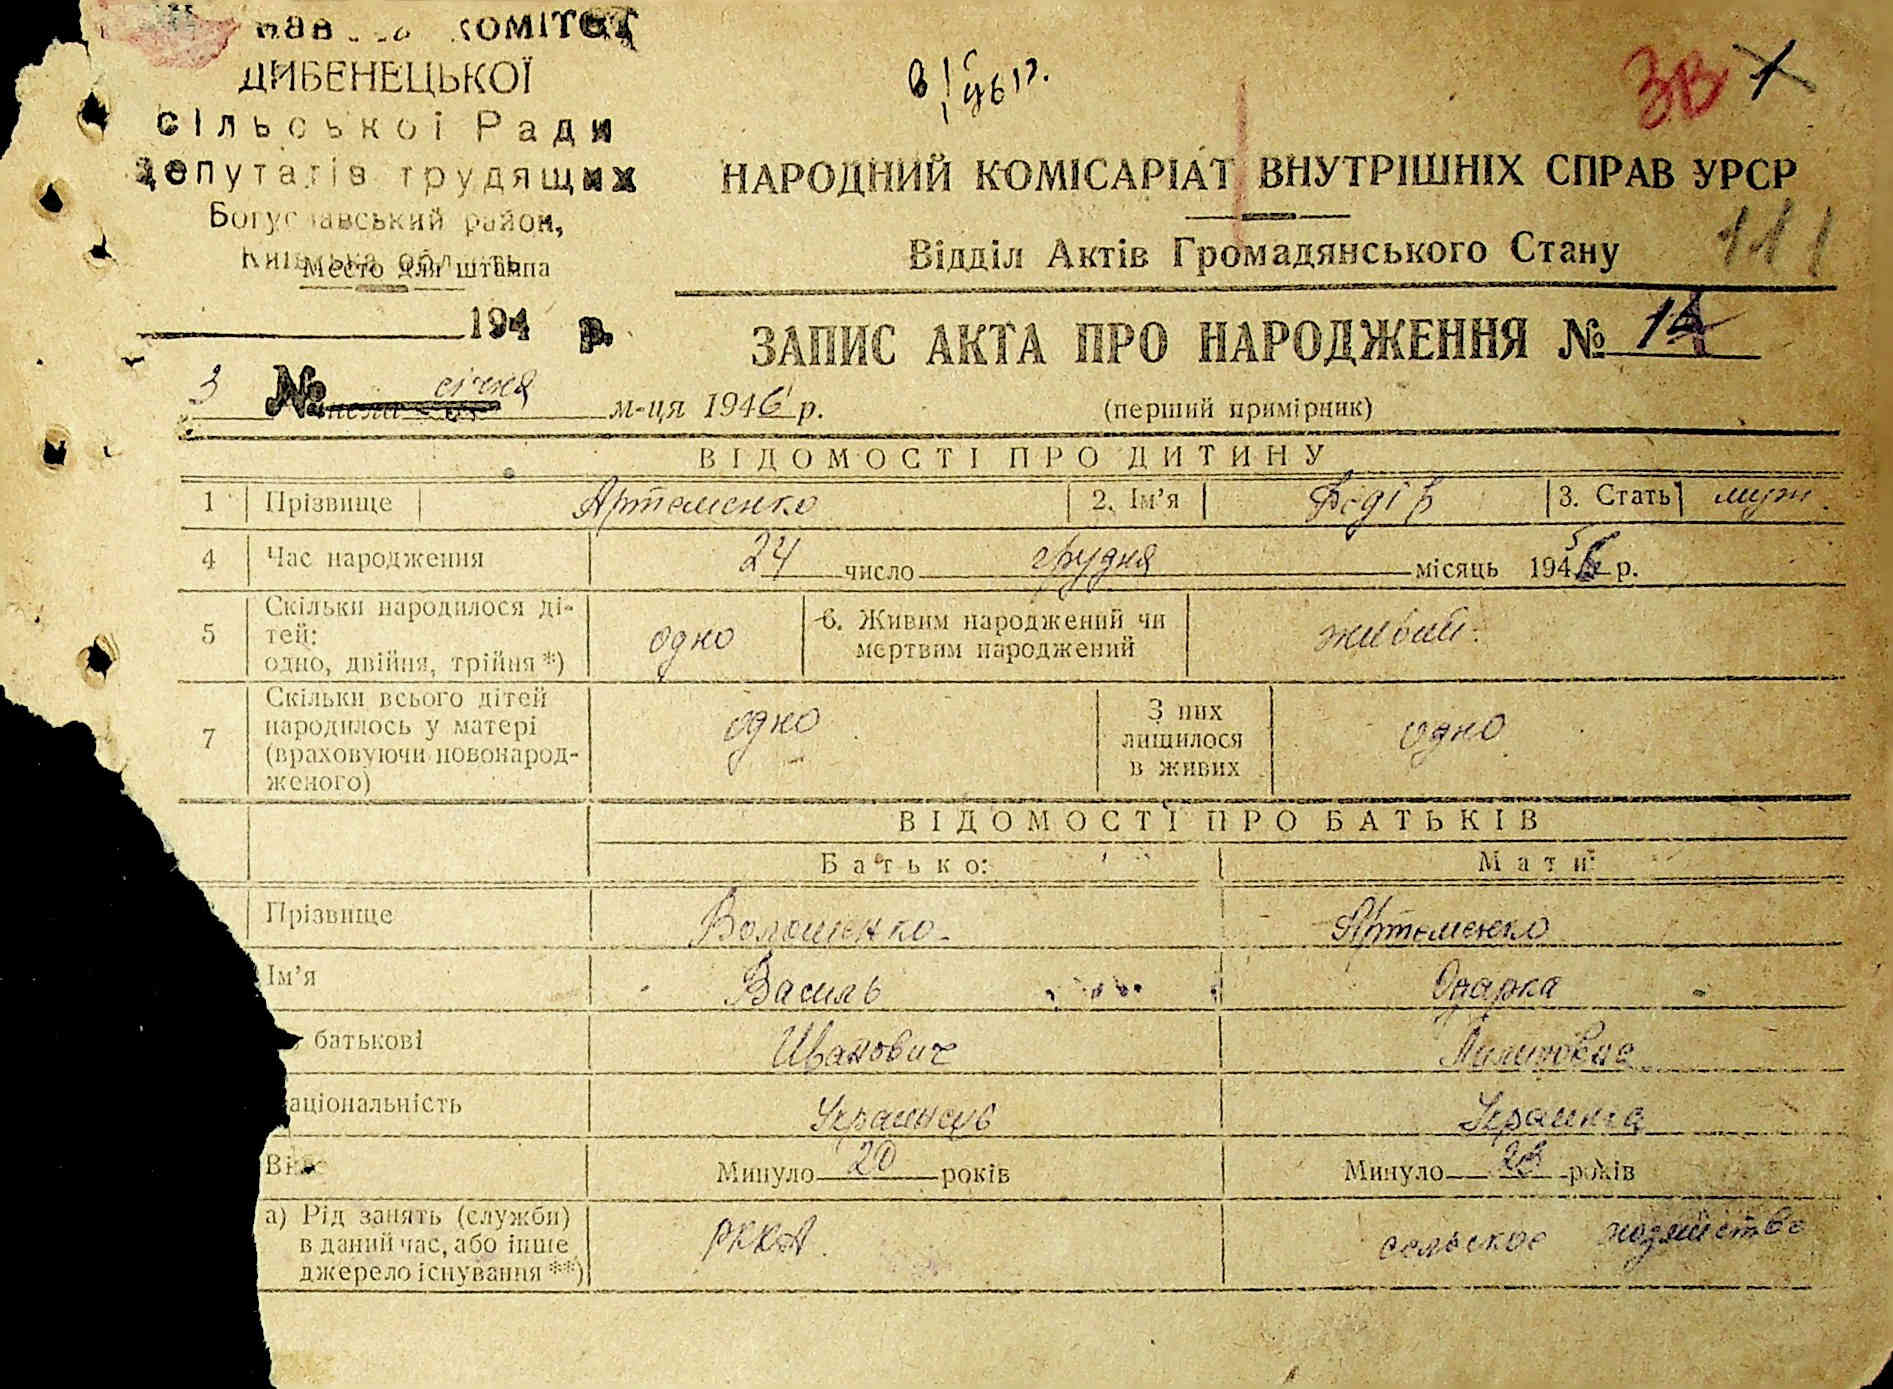 комітет
ДИБЕНЕЦЬКОЇ
сільської Ради
депутатів трудящих
Богуславський район,
Київська область
Место для штампа
194 р.
№
ЗВ 1
НАРОДНИЙ КОМІСАРІАТ ВНУТРІШНІХ СПРАВ УРСР
Відділ Актів Громадянського Стану
111
ЗАПИС АКТА ПРО НАРОДЖЕННЯ №
3 січня м-ця 1946 р.
(перший примірник)
ВІДОМОСТІ ПРО ДИТИНУ
1 Прізвище Артеменко 2. Ім'я 3. Стать муж.
4 Час народження 24 число грудня місяць 1945 р.
5 Скільки народилося ді-
тей:
одно, двійня, трійня *) одно 6. Живим народжений чи
мертвим народжений живий.
7 Скільки всього дітей
народилось у матері
(враховуючи новонарод-
женого) одно З них
лишилося
в живих одно
ВІДОМОСТІ ПРО БАТЬКІВ
Батько: Мати:
Прізвище Волошенко Артеменко
Ім'я Василь Одарка
батькові Иванович
аціональність Украинець Украинка
Вік Минуло 20 років Минуло 23 років
а) Рід занять (служби)
в даний час, або інше
джерело існування **) РККА сельское хозяйство